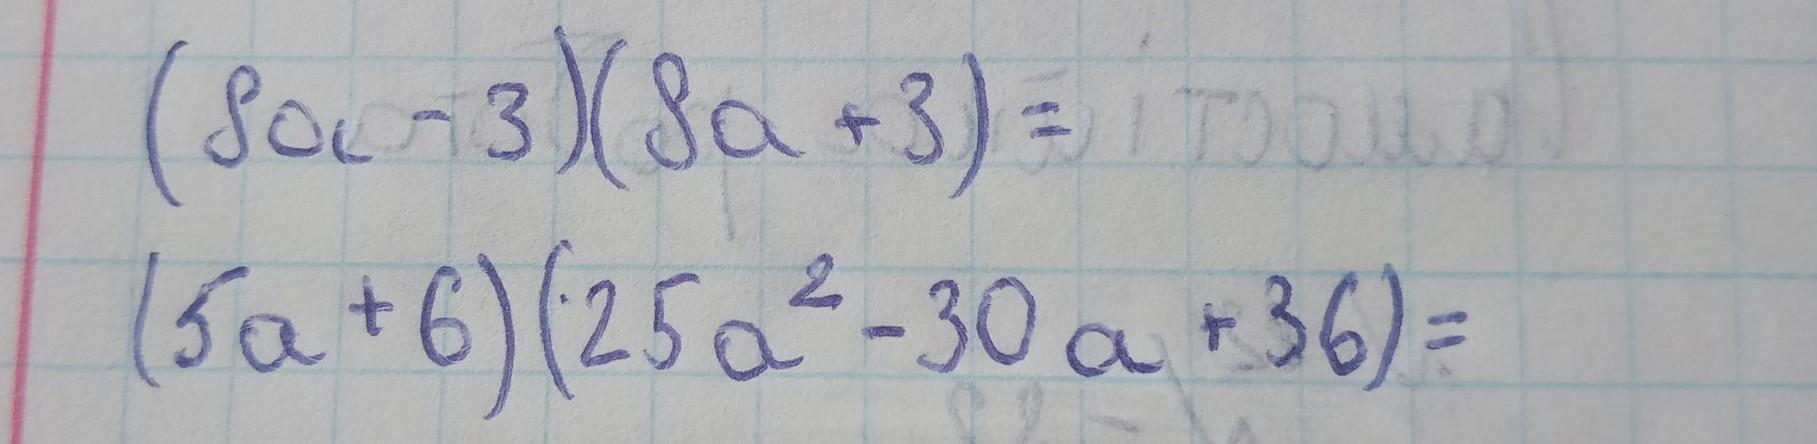 (8a-3)(8a+3)=
(5a+6)(25a²-30a+36)=